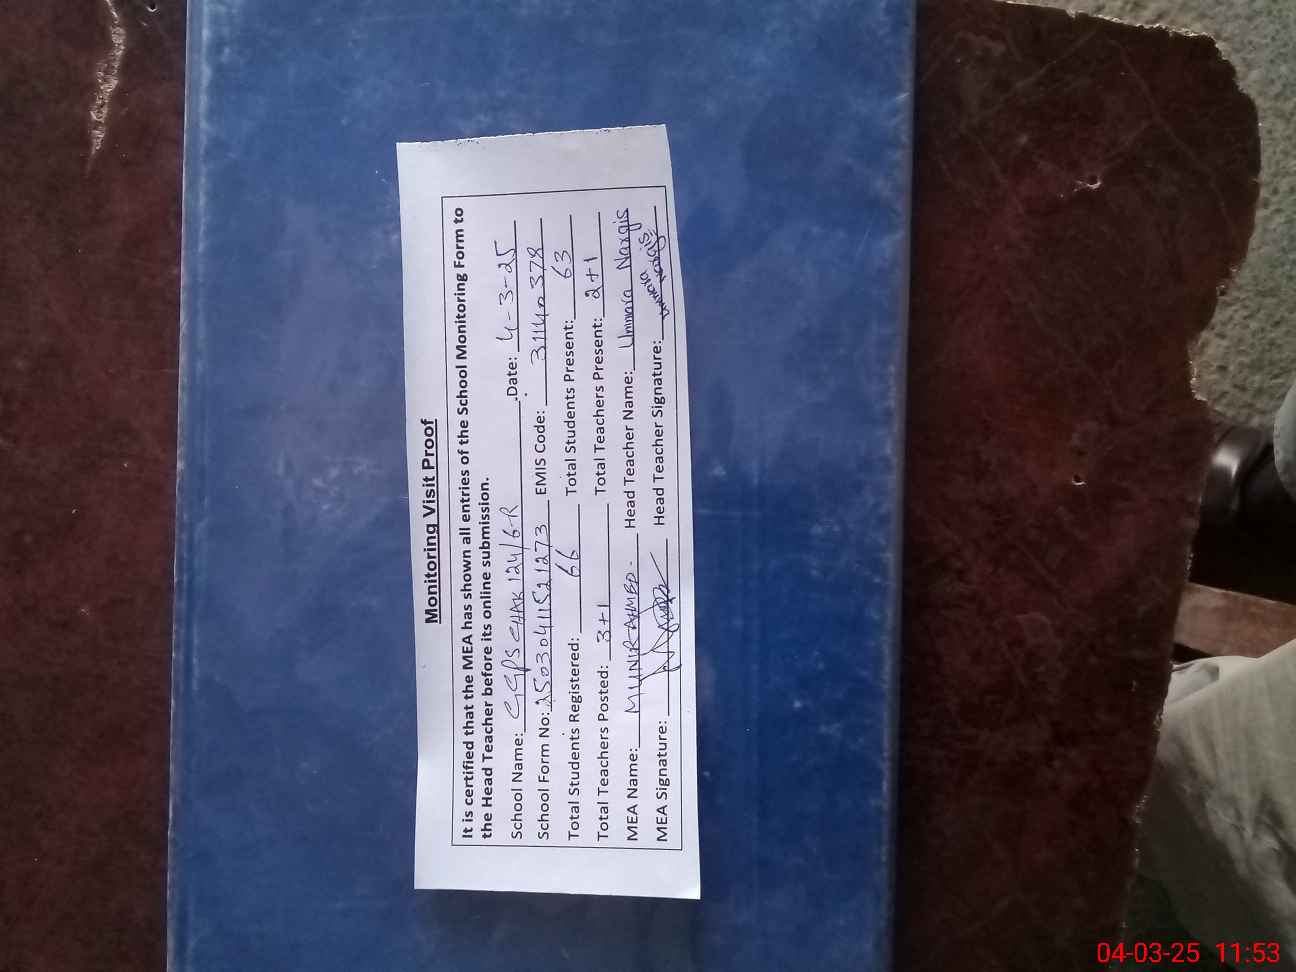 Monitoring Visit Proof
It is certified that the MEA has shown all entries of the School Monitoring Form to
the Head Teacher before its online submission.
School Name: GGPS CHAK 124/6-R Date: 4-3-25
School Form No: 2503041152 1273 EMIS Code: 31140378
Total Students Registered: 66 Total Students Present: 63
Total Teachers Posted: 3+1 Total Teachers Present: 2+1
MEA Name: MUNIR AHMED. Head Teacher Name: Ummara Nargis
MEA Signature: Head Teacher Signature: Ummara Nargis
04-03-25 11:53